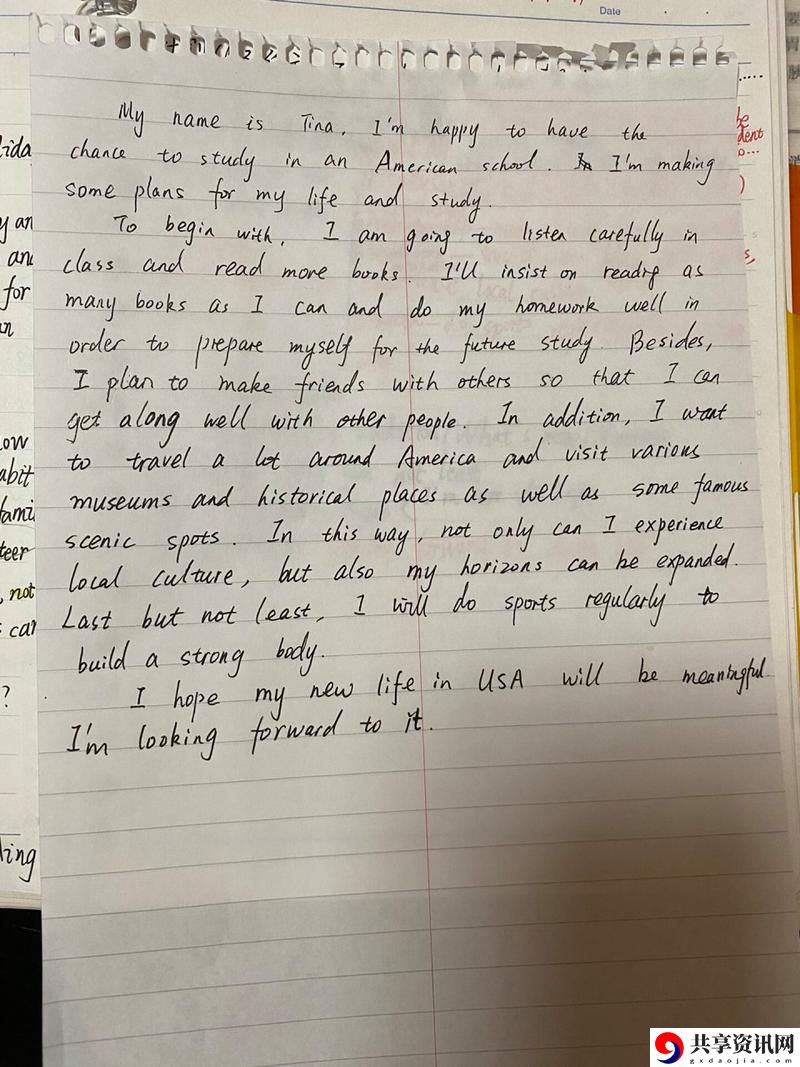 Date
My name is Tina. I'm happy to have the
chance to study in an American school. I'm making
some plans for my life and study.
To begin with, I am going to listen carefully in
class and read more books. I'll insist on readig as
many books as I can and do my homework well in
order to prepare myself for the future study. Besides,
I plan to make friends with others so that I can
get along well with other people. In addition, I want
to travel a lot around America and visit various
museums and historical places as well as some famous
scenic spots. In this way, not only can I experience
local culture, but also my horizons can be expanded.
Last but not least, I will do sports regularly to
build a strong body.
I hope my new life in USA will be meaningful.
I'm looking forward to it.
lida
y an
and
for
ow
abit
fami
teer
, not
s can
?
ling
be
dent
o...
)
s,
共享资讯网
gxdaojia.com